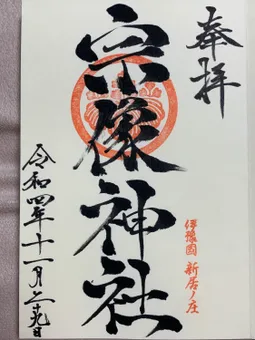 奉拝
伊豫國 新居ノ庄
宗像神社
令和四年十一月二十九日